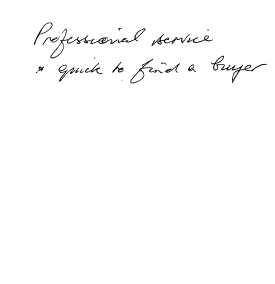 Professional service
* quick to find a buyer